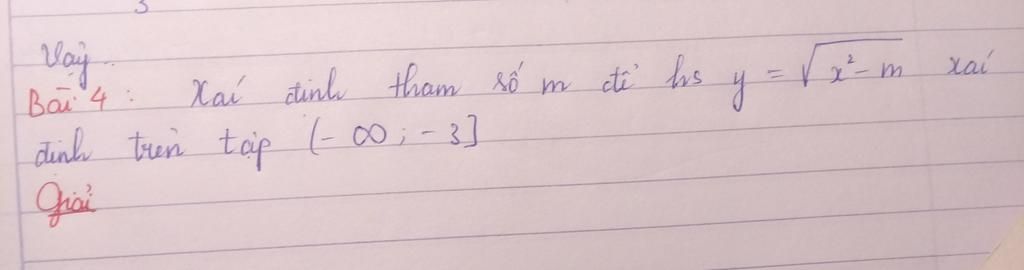 3
Vậy..
Bài 4 : Xác định tham số m để hs y = √(x² - m) xác
định trên tập (- ∞ ; - 3]
Giải